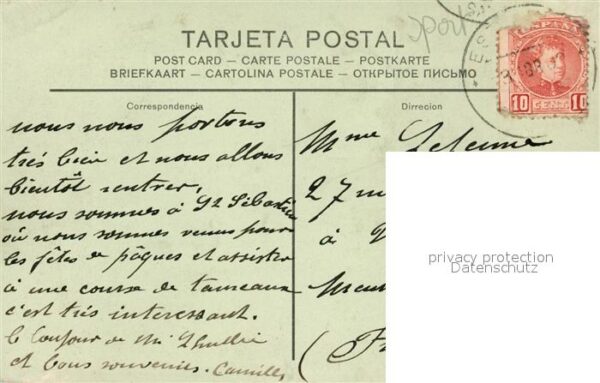 sport
TARJETA POSTAL
POST CARD — CARTE POSTALE — POSTKARTE
BRIEFKAART — CARTOLINA POSTALE — ОТКРЫТОЕ ПИСЬМО
Correspondencia
Direccion
ESPAÑA
10 CENTS 10
nous nous portons
très bien et nous allons
bientôt rentrer,
nous sommes à St Sébastien
où nous sommes venus pour
les fêtes de pâques et assister
à une course de taureaux
c'est très interessant.
le bonjour de Mr
et bons souvenirs. Camille
Mme Lejeune
27
à
privacy protection
Datenschutz